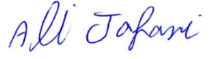 Ali Jafari